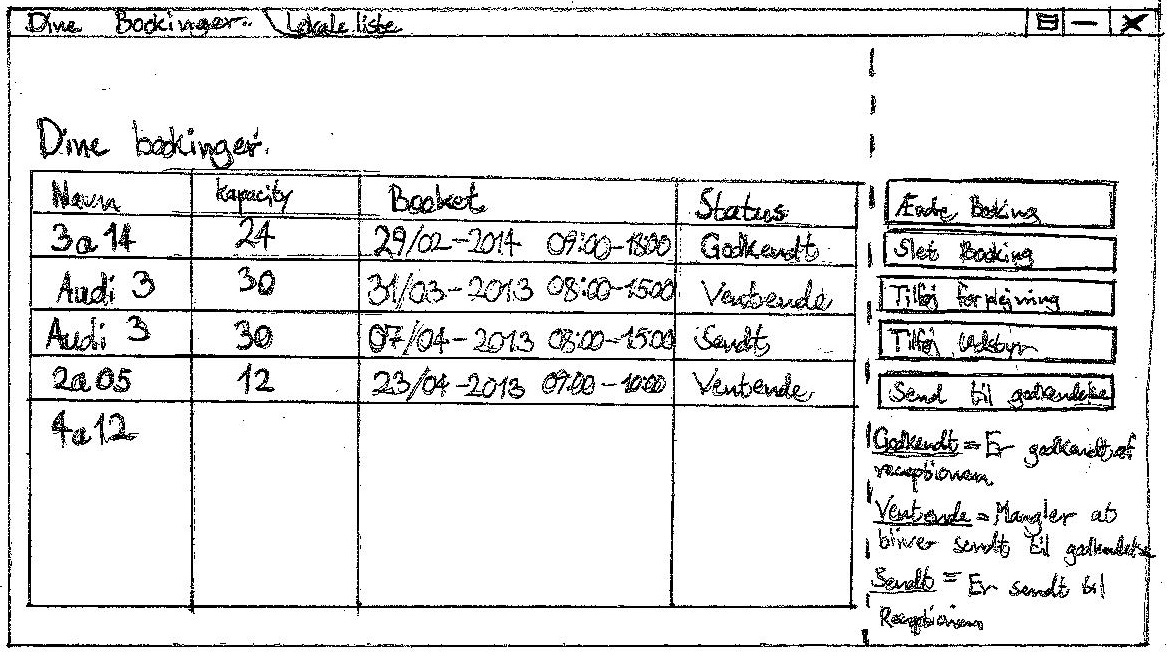 Dine Bookinger. Lokale liste
Dine bookinger.
Navn kapacity Booket Status
3a14 24 29/02-2014 09:00-18:00 Godkendt
Audi 3 30 31/03-2013 08:00-15:00 Ventende
Audi 3 30 07/04-2013 08:00-15:00 Sendt
2a05 12 23/04-2013 07:00-10:00 Ventende
4a12
Ændre Booking
Slet Booking
Tilføj forplejning
Tilføj Udstyr
Send til godkendelse
Godkendt = Er godkendt af
receptionen.
Ventende = Mangler at
bliver sendt til godkendelse
Sendt = Er sendt til
Receptionen